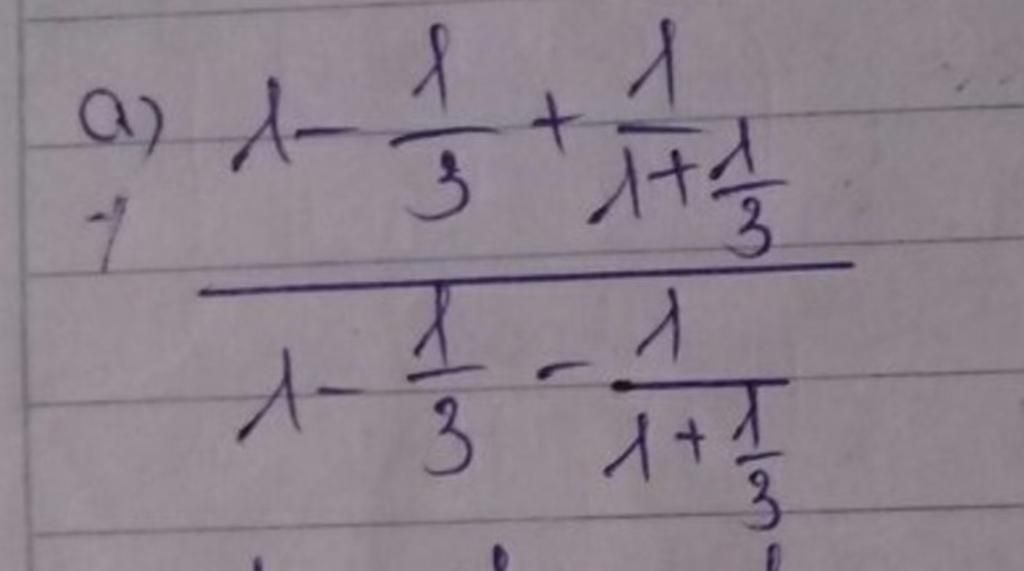 a) 1 - 1/3 + 1/(1 + 1/3)
1 - 1/3 - 1/(1 + 1/3)